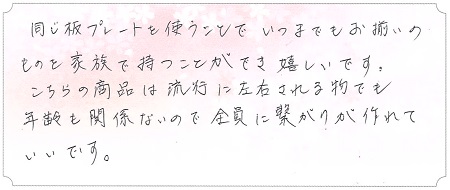 同じ板プレートを使うことで いつまでもお揃いの
ものを家族で持つことができ嬉しいです。
こちらの商品は流行に左右される物でも
年齢も関係ないので全員に繋がりが作れて
いいです。